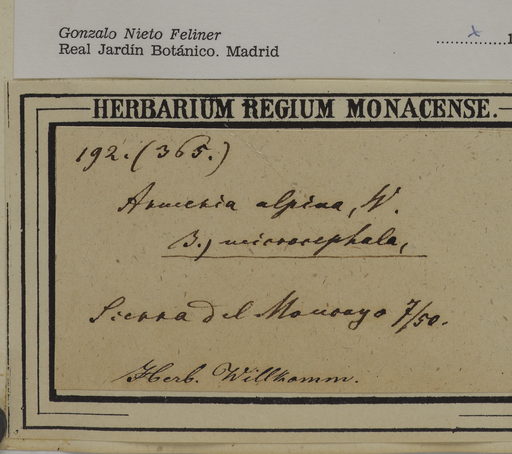 Gonzalo Nieto Feliner
Real Jardín Botánico. Madrid
HERBARIUM REGIUM MONACENSE.
192. (365.)
Armeria alpina, W.
B., microcephala,
Sierra del Moncayo 7/50.
Herb. Willkomm.